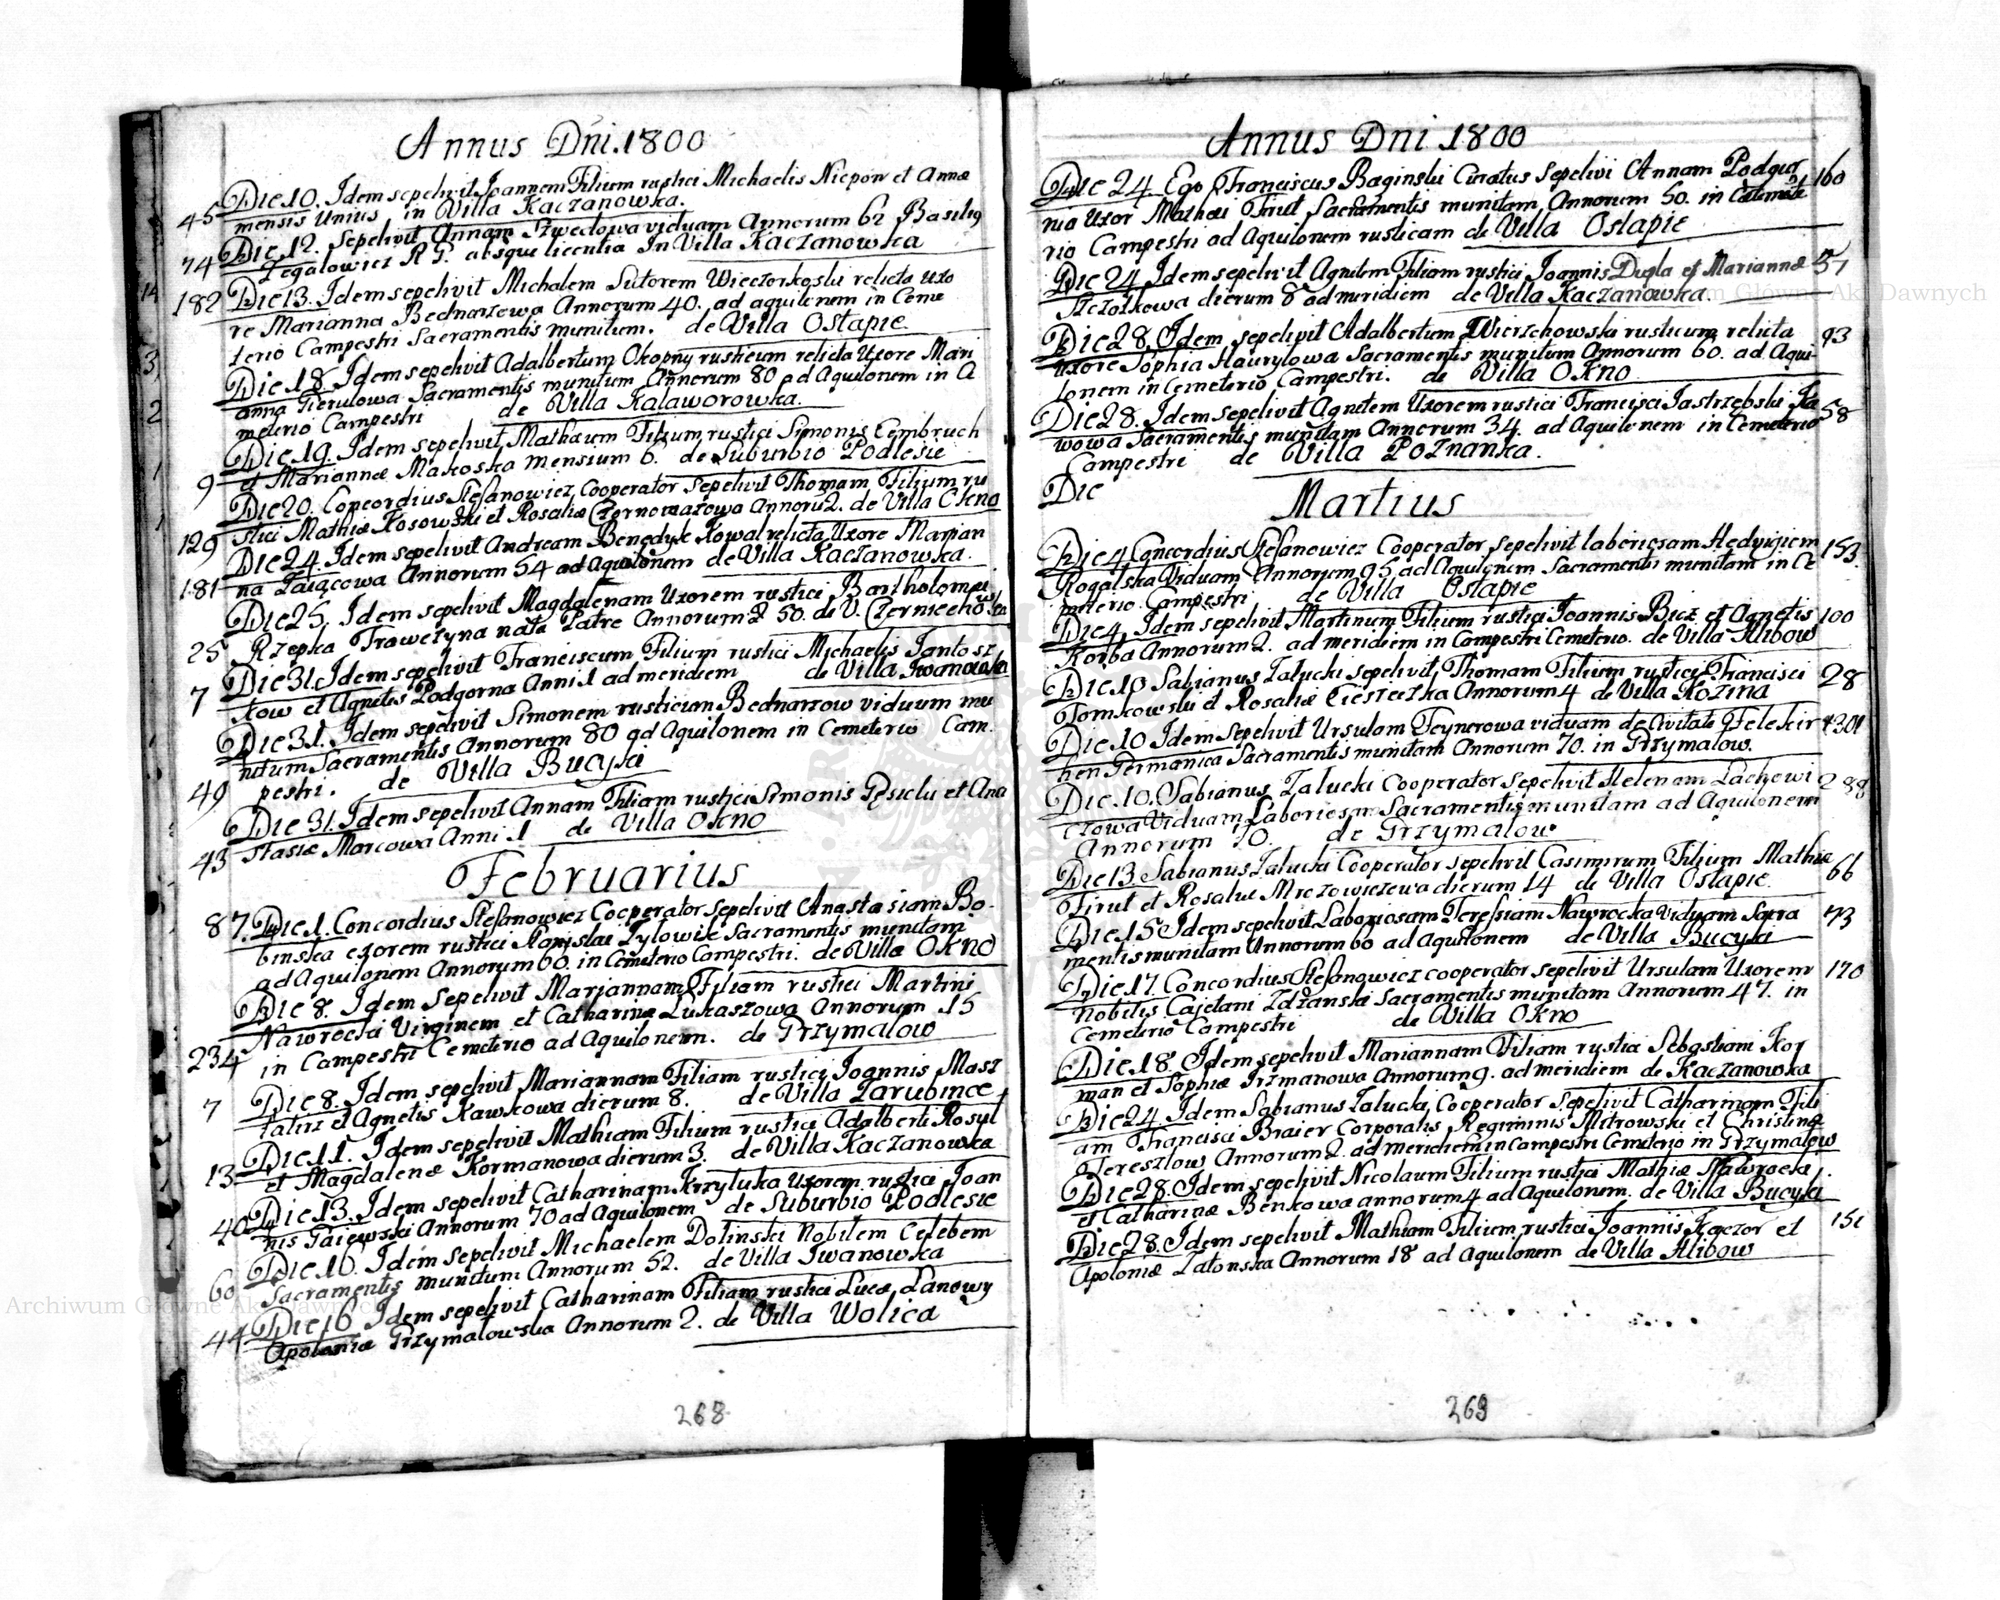 Annus Dni. 1800
Die 10. Idem sepelivit Joannem Filium rustici Michaelis Niepon et Annæ
45 mensis Unius in Villa Kaczanowka.
Die 12. Sepelivit Annam Szwedowa viduam Annorum 62 Basilig
74 Zegalowicz R G. absque licentia In Villa Kaczanowka
182 Die 13. Idem sepelivit Michalem Sutorem Wieczorkoski relicta uxo
re Marianna Bednarzewa Annorum 40. ad aquilonem in Ceme
terio Campestri Sacramentis munitum. de Villa Ostapie
Die 18. Idem sepelivit Adalbertum Okopny rusticum relicta Uxore Mari
anna Pierulowa Sacramentis munitum Annorum 80 ad Aquilonem in C
meterio Campestri de Villa Kalaworowka.
Die 19. Idem sepelivit Mathæum Filium rustici Simonis Cembruch
9 et Mariannæ Makoska mensium 6. de Suburbio Podlesie
Die 20. Concordius Stefanowicz Cooperator Sepelivit Thomam Filium ru
129 stici Mathiæ Kosowski et Rosaliæ Czernomazowa Annoru 2. de Villa Okno
Die 24. Idem sepelivit Andream Benedyk Kowal relicta Uxore Marian
181 na Zaiącowa Annorum 54 ad Aquilonem de Villa Kaczanowka.
Die 25. Idem sepelivit Magdalenam Uxorem rustici Bartholomæi
25 Rzepka Traweżyna nata Patre Annorum 50. de V. Czerniechowka
Die 31. Idem sepelivit Franciscum Filium rustici Michaelis Jantosz
7 kow et Agnetis Podgorna Anni 1 ad meridiem de Villa Iwanowka
Die 31. Idem sepelivit Simonem rusticum Bednarzow viduum mu
nitum Sacramentis Annorum 80 ad Aquilonem in Cemeterio Cam.
49 pestri. de Villa Bucyki
Die 31. Idem sepelivit Annam Filiam rustici Simonis Gęsicki et Ana
43 stasiæ Marcowa Anni 1 de Villa Okno
Februarius
87. Die 1. Concordius Stefanowicz Cooperator Sepelivit Anastasiam Bo.
binska exorem rustici Stanislai Zylowik Sacramentis munitam
ad Aquilonem Annorum 60. in Cemeterio Campestri. de Villa Okno
Die 8. Idem Sepelivit Mariannam Filiam rustici Martini
Nawrocki Virginem et Catharinæ Lukaszowa Annorum 15
234 in Campestri Cemeterio ad Aquilonem. de Grzymalow
Die 8. Idem sepelivit Mariannam Filiam rustici Joannis Masz
7 talirz et Agnetis Kawkowa dierum 8. de Villa Zarubince
Die 11. Idem sepelivit Mathiam Filium rustici Adalberti Rosul
13 et Magdalenæ Kormanowa dierum 3. de Villa Kaczanowka
Die 13. Idem sepelivit Catharinam Krzyluka Uxorem rustici Joan
40 nis Gaiewski Annorum 70 ad Aquilonem de Suburbio Podlesie
Die 16. Idem sepelivit Michaelem Dolinski Nobilem Celebem
60 Sacramentis munitum Annorum 52. de Villa Iwanowka
Die 16 Idem sepelivit Catharinam Filiam rustici Lucæ Lanowy
44 Apoloniæ Grzymalowska Annorum 2. de Villa Wolica
268
Annus Dni 1800
Die 24 Ego Franciscus Baginski Curatus Sepelivi Annam Podgur 160
nia Uxor Mathæi Firut Sacramentis munitam Annorum 50. in Cæmete
rio Campestri ad Aquilonem rusticam de Villa Ostapie
Die 24 Idem sepelivit Agnitem Filiam rustici Joannis Dugla et Mariannæ 57
Szczotkowa dierum 8 ad meridiem de Villa Kaczanowka.
Die 28. Idem sepelivit Adalbertum Wierzchowski rusticum relicta 93
uxore Sophia Hawrylowa Sacramentis munitum Annorum 60. ad Aqui
lonem in Cemeterio Campestri. de Villa Okno
Die 28. Idem sepelivit Agnetem Uxorem rustici Francisci Jastrzebski Ka 58
wowa Sacramentis munitam Annorum 34. ad Aquilonem in Cemeterio
Campestri de Villa Poznanka.
Die
Martius
Die 4 Concordius Stefanowicz Cooperator sepelivit laboriosam Hedvigiem 153.
Rogalska Viduam Annorum 95 ad Aquilonem Sacramentis munitam in Ce
meterio Campestri de Villa Ostapie
Die 4. Idem sepelivit Martinum Filium rustici Joannis Bicz et Agnetis 100
Korba Annorum 2. ad meridiem in Campestri Cemeterio. de Villa Hlibow
Die 10 Sabianus Zalucki sepelivit Thomam Filium rustici Francisci 28
Tomkowski et Rosaliæ Ciesieczka Annorum 4 de Villa Kozina
Die 10 Idem Sepelivit Ursulam Feynerowa viduam de Civitate Gelekir 4301
hen Germanica Sacramentis munitam Annorum 70. in Grzymalow.
Die 10. Sabianus Zalucki Cooperator Sepelivit Helenam Lachowi 288
czowa Viduam Laboriosam Sacramentis munitam ad Aquilonem
Annorum 70. de Grzymalow
Die 13. Sabianus Zalucki Cooperator sepelivit Casimirum Filium Mathiæ
Firut et Rosaliæ Mrozowiczewa dierum 14 de Villa Ostapie. 66
Die 15 Idem sepelivit Laboriosam Teressiam Nawrocka Viduam Sacra 73
mentis munitam Annorum 60 ad Aquilonem de Villa Bucyki
Die 17. Concordius Stefanowicz cooperator sepelivit Ursulam Uxorem 170
Nobilis Cajetani Zdżanski Sacramentis munitam Annorum 47. in
Cemeterio Campestri de Villa Okno
Die 18. Idem sepelivit Mariannam Filiam rustici Sebastiani Kor
man et Sophiæ Irzmanowa Annorum 9. ad meridiem de Kaczanowka
Die 24 Idem Sabianus Zalucki Cooperator Sepelivit Catharinam Fili
am Francisci Braier Corporalis Regiminis Mitrowski et Christinæ
Tereszlow Annorum 2. ad meridiem in Campestri Cemeterio in Grzymalow
Die 28. Idem sepelivit Nicolaum Filium rustici Mathiæ Nawrocki
et Catharinæ Benkowa annorum 4 ad Aquilonem. de Villa Bucyki
Die 28. Idem sepelivit Mathiam Filium rustici Joannis Kaczor et 151
Apoloniæ Zatonska Annorum 18 ad Aquilonem de Villa Hlibow
269
Archiwum Główne Akt Dawnych